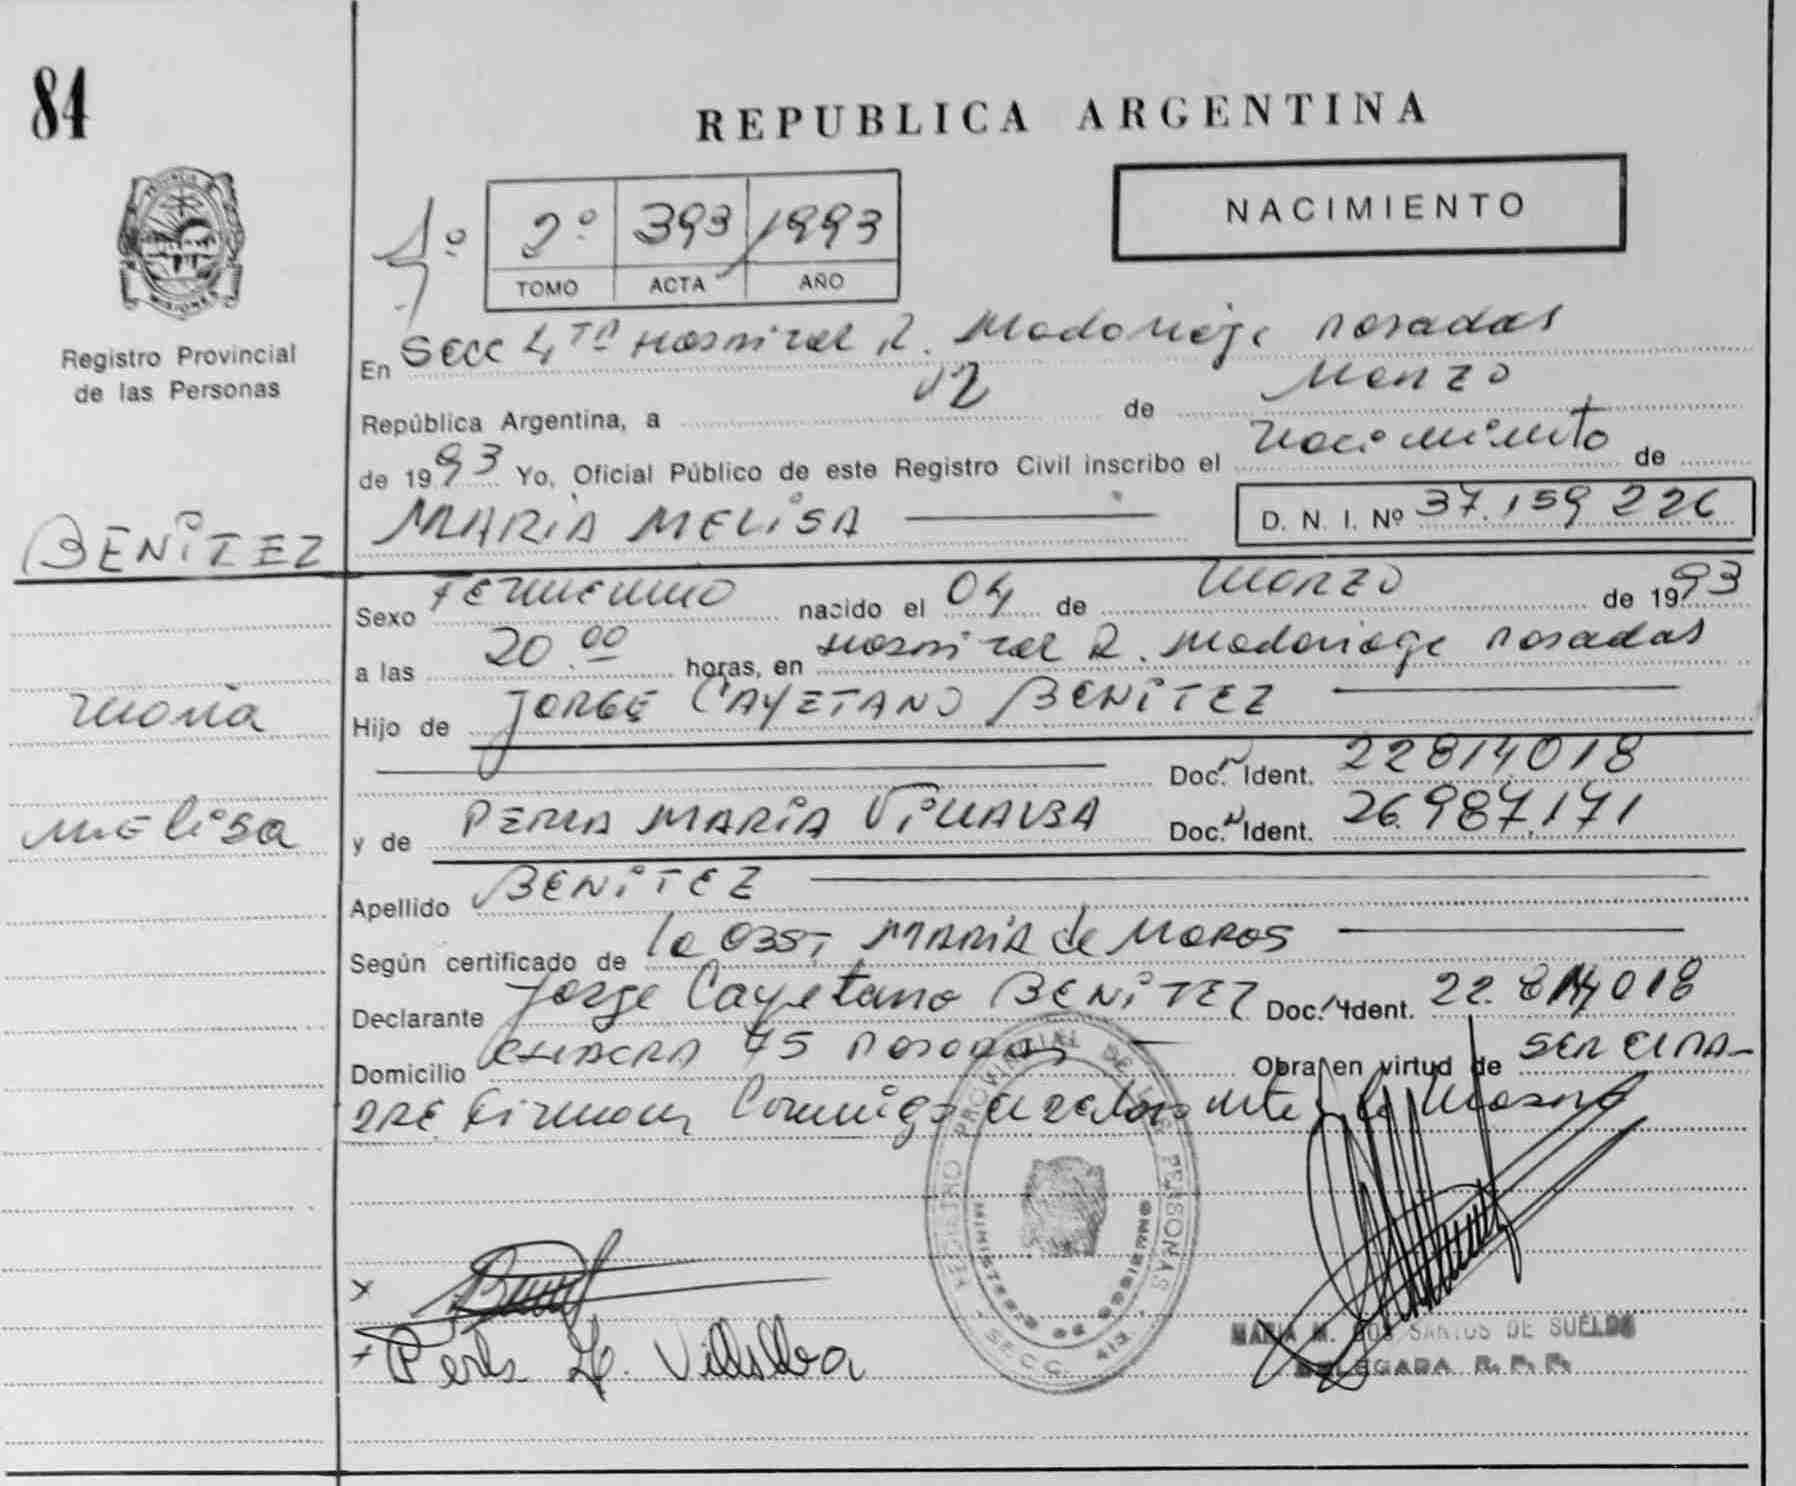 84
REPUBLICA ARGENTINA
NACIMIENTO
1º 2º 393 1993
TOMO ACTA AÑO
PROVINCIA DE MISIONES
Registro Provincial
de las Personas
En Secc 4ta Hospital R. Madariaga Posadas
República Argentina, a 12 de Marzo
de 1993 Yo, Oficial Público de este Registro Civil inscribo el Nacimiento de
BENiTEZ MARiA MELiSA D. N. I. Nº 37.159 226
Sexo Femenino nacido el 04 de Marzo de 1993
a las 20.00 horas, en Hospital R. Madariaga Posadas
Maria
Hijo de JORGE CAYETANO BENiTEZ
Doc. Ident. 22814018
Melisa
y de PERLA MARiA ViLLALBA Doc. Ident. 26.987.171
Apellido BENiTEZ
Según certificado de la OBST MARiA de
Declarante Jorge Cayetano BENiTEZ Doc. Ident. 22.814018
Domicilio CHACRA 75 Posadas Obra en virtud de SER EL PA-
DRE Firman Conmigo
REGISTRO PROVINCIAL DE LAS PERSONAS
MINISTERIO DE GOBIERNO
SECC. 4ta
Perla M. Villalba
MARIA M. DOS SANTOS DE SUELDO
DELEGADA R. P. P.